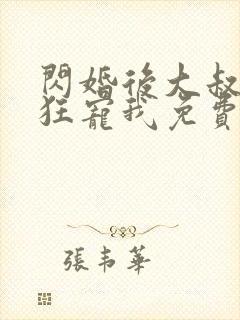 閃婚後大叔
狂寵我免費
張韋華